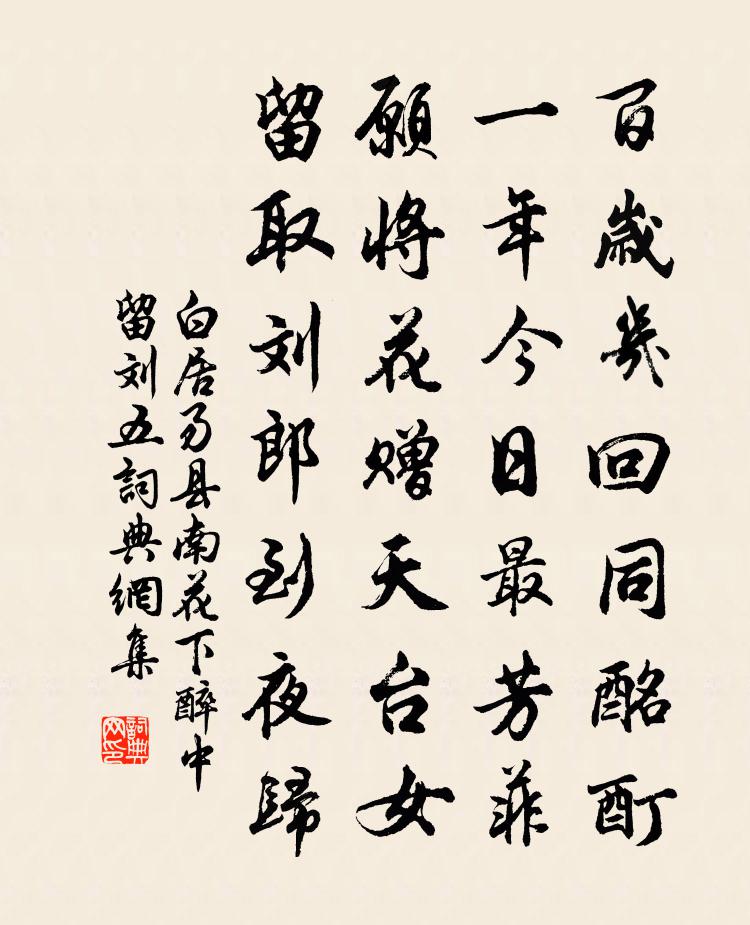 百歲幾回同酩酊
一年今日最芳菲
願將花贈天台女
留取刘郎到夜歸
白居易县南花下醉中
留刘五詞典網集
詞典
网印